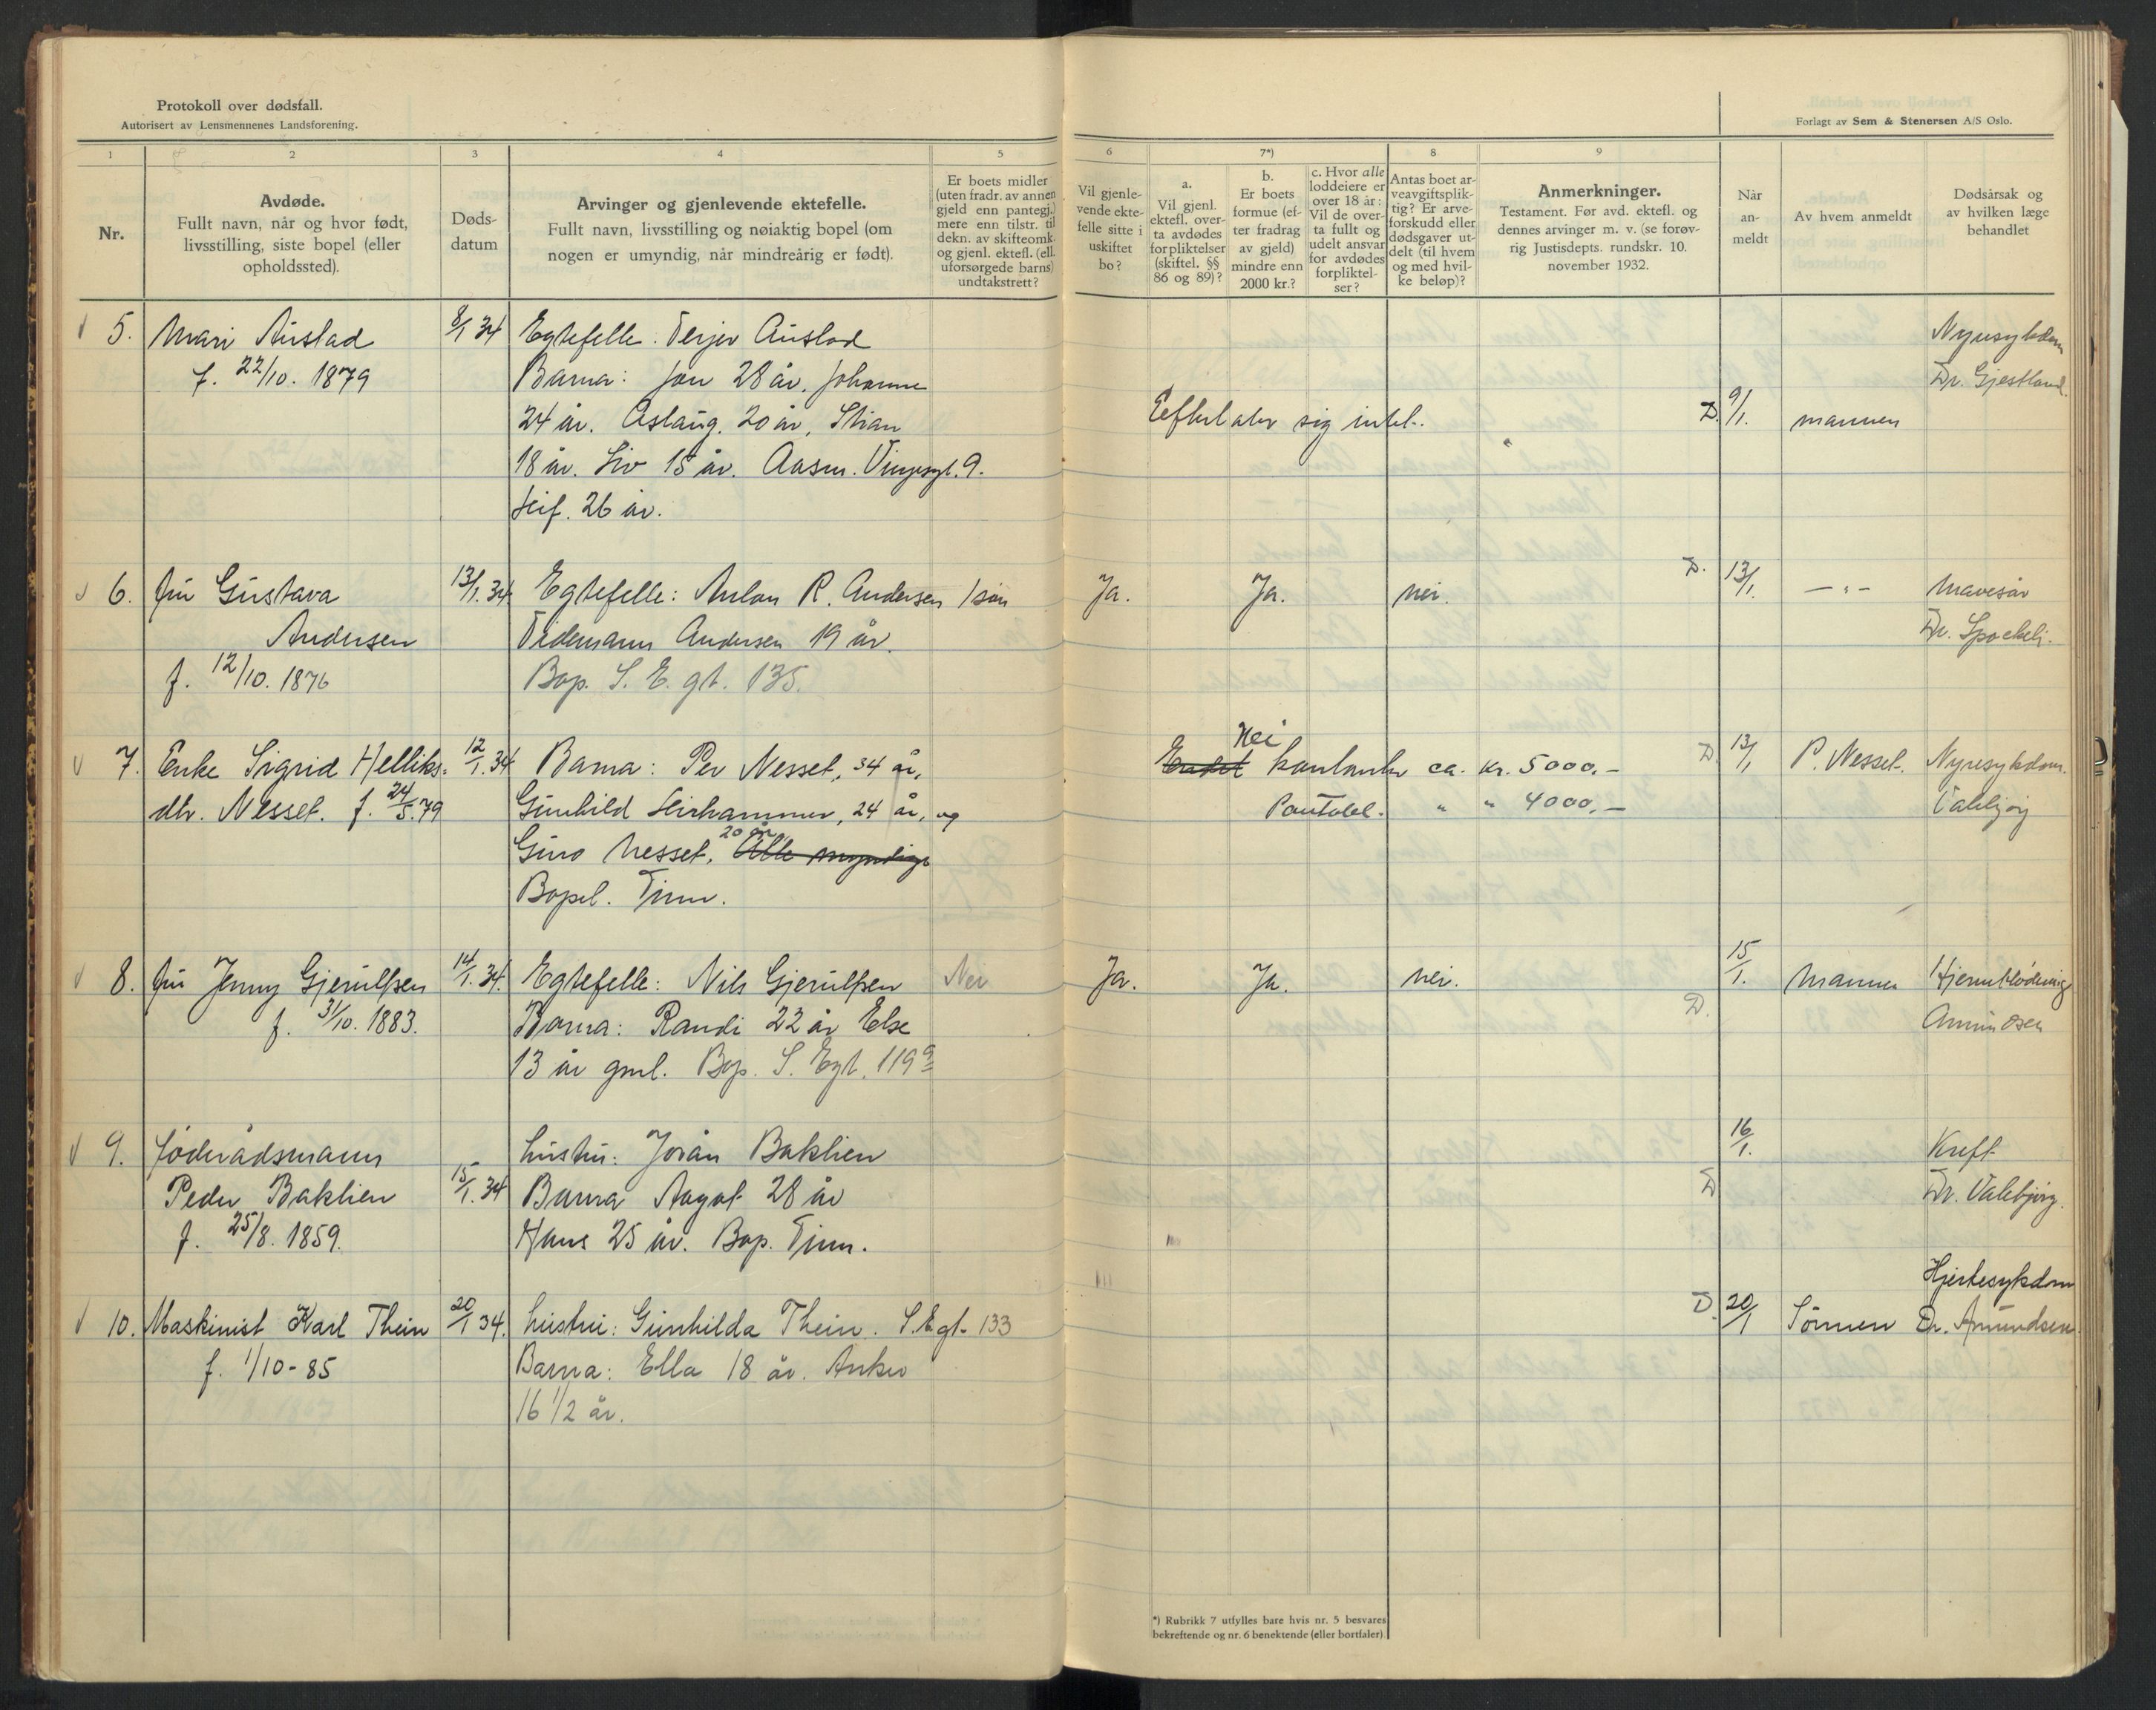 Protokoll over dødsfall.
Autorisert av Lensmennenes Landsforening.
Forlagt av Sem & Stenersen A/S Oslo.
1
2
3
4
5
6
7*)
8
9
Nr.
Avdøde.
Fullt navn, når og hvor født,
livsstilling, siste bopel (eller
opholdssted).
Døds-
datum
Arvinger og gjenlevende ektefelle.
Fullt navn, livsstilling og nøiaktig bopel (om
nogen er umyndig, når mindreårig er født).
Er boets midler
(uten fradr. av annen
gjeld enn pantegj.)
mere enn tilstr. til
dekn. av skifteomk.
og gjenl. ektefl. (ell.
uforsørgede barns)
undtakstrett?
Vil gjenle-
vende ekte-
felle sitte i
uskiftet
bo?
a.
Vil gjenl.
ektefl. over-
ta avdødes
forpliktelser
(skiftel. §§
86 og 89)?
b.
Er boets
formue (ef-
ter fradrag
av gjeld)
mindre enn
2000 kr.?
c. Hvor alle
loddeiere er
over 18 år:
Vil de over-
ta fullt og
udelt ansvar
for avdødes
forpliktel-
ser?
Antas boet ar-
veavgiftsplik-
tig? Er arve-
forskudd eller
dødsgaver ut-
delt (til hvem
og med hvil-
ke beløp)?
Anmerkninger.
Testament. Før avd. ektefl. og
dennes arvinger m. v. (se forøv-
rig Justisdepts. rundskr. 10.
november 1932.
Når
an-
meldt
Av hvem anmeldt
Dødsårsak og
av hvilken læge
behandlet
5. Mari Austad 8/1 34 Egtefelle: Terjer Austad Nyresykdom
f. 22/10. 1879 Barna: Jon 28 år, Johanne Dr. Gjestland.
24 år. Aslaug. 20 år, Stian Eefterlater sig intet. D. 9/1. mannen
18 år. Liv 15 år. Aasm. Vinjesgt. 9.
Leif. 26 år.
6. fru Gustava 13/1. 34. Egtefelle: Anton R. Andersen 1 søn Ja. Ja. nei. D. 13/1. — " — Mavesår
Andersen Tidemann Andersen 19 år. Dr.
f. 12/10. 1876 Bop. S. E. gt. 135.
Nei
7. Enke Sigrid Helliks- 12/1. 34 Barna: Per Nesset, 34 år, kontanter ca. kr. 5000.- D. 13/1 P. Nesset. Nyresykdom.
dtr. Nesset. f. 24/5. 79 Gunhild 24 år, og " " 4000.- Valebjørg
Guro Nesset, 20 år Alle myndige
Bopel. Tinn.
8. fru Jenny Gjerulfsen 14/1. 34. Egtefelle: Nils Gjerulfsen Nei Ja. Ja. nei. 15/1. Mannen Hjerneblødning
f. 31/10. 1883. Barna: Randi 22 år Else D. Amundsen
13 år gml. Bop. S. Egt. 119 a
9. føderådsmann hustru: Joran Baklien 16/1. Kreft
Peder Baklien 15/1. 34 Barna Aagot 28 år D Dr. Valebjørg.
f. 25/8. 1859. Hans 25 år. Bop. Tinn.
Hjertesykdom
10. Maskinist Karl Thein 20/1 34. hustru: Gunhilda Thein. S. E. gt. 133 D. 20/1 Sønnen Dr. Amundsen.
f. 1/10-85 Barna: Ella 18 år. Anker
16 1/2 år.
*) Rubrikk 7 utfylles bare hvis nr. 5 besvares
bekreftende og nr. 6 benektende (eller bortfaler).